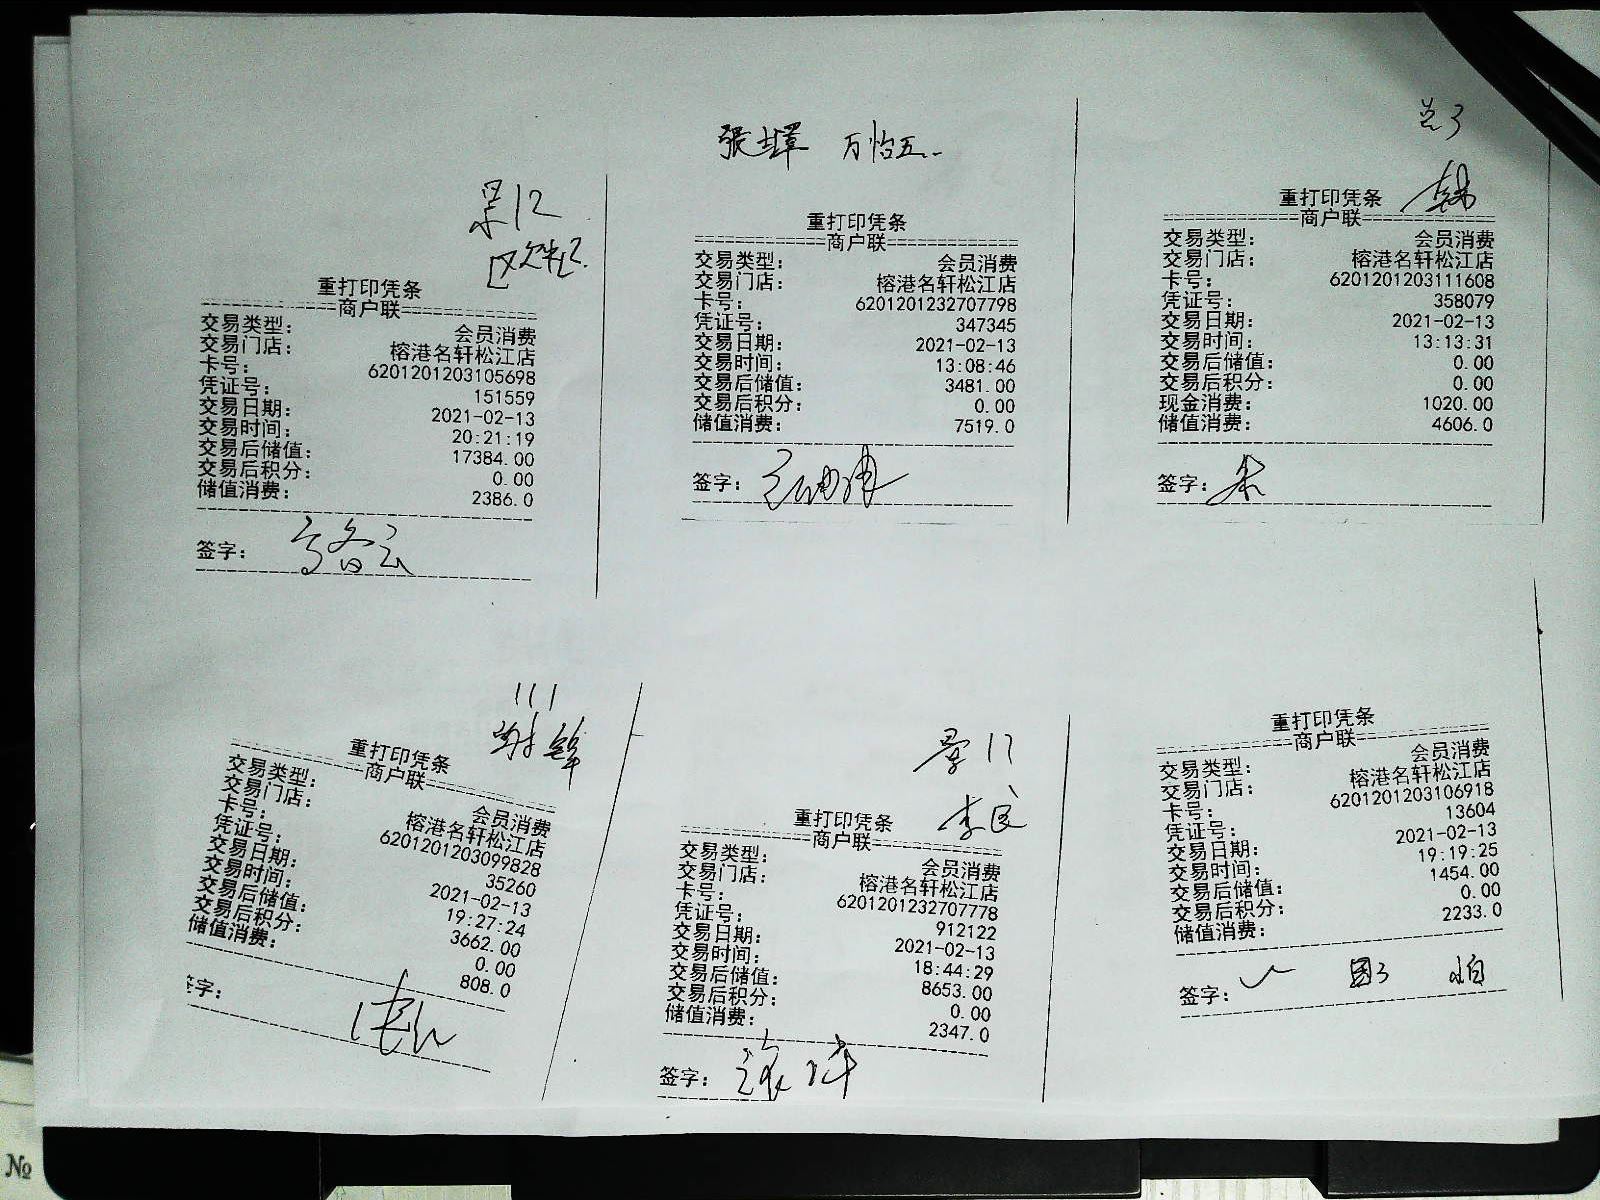 重打印凭条
==========商户联==========
交易类型: 会员消费
交易门店: 榕港名轩松江店
卡号: 6201201203105698
凭证号: 151559
交易日期: 2021-02-13
交易时间: 20:21:19
交易后储值: 17384.00
交易后积分: 0.00
储值消费: 2386.0
签字:
重打印凭条
==========商户联==========
交易类型: 会员消费
交易门店: 榕港名轩松江店
卡号: 6201201232707798
凭证号: 347345
交易日期: 2021-02-13
交易时间: 13:08:46
交易后储值: 3481.00
交易后积分: 0.00
储值消费: 7519.0
签字:
重打印凭条
==========商户联==========
交易类型: 会员消费
交易门店: 榕港名轩松江店
卡号: 6201201203111608
凭证号: 358079
交易日期: 2021-02-13
交易时间: 13:13:31
交易后储值: 0.00
交易后积分: 0.00
现金消费: 1020.00
储值消费: 4606.0
签字:
111
重打印凭条
==========商户联==========
交易类型: 会员消费
交易门店: 榕港名轩松江店
卡号: 6201201203099828
凭证号: 35260
交易日期: 2021-02-13
交易时间: 19:27:24
交易后储值: 3662.00
交易后积分: 0.00
储值消费: 808.0
字:
重打印凭条
==========商户联==========
交易类型: 会员消费
交易门店: 榕港名轩松江店
卡号: 6201201232707778
凭证号: 912122
交易日期: 2021-02-13
交易时间: 18:44:29
交易后储值: 8653.00
交易后积分: 0.00
储值消费: 2347.0
签字:
重打印凭条
==========商户联==========
交易类型: 会员消费
交易门店: 榕港名轩松江店
卡号: 6201201203106918
凭证号: 13604
交易日期: 2021-02-13
交易时间: 19:19:25
交易后储值: 1454.00
交易后积分: 0.00
储值消费: 2233.0
签字:
№